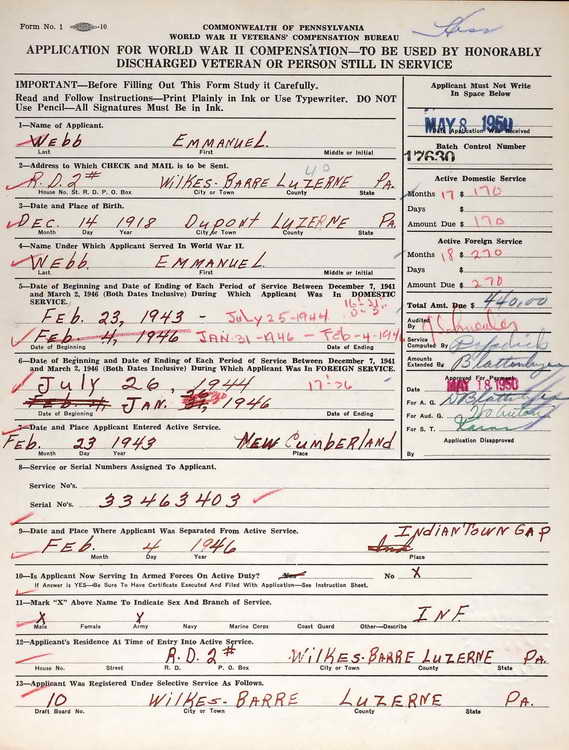 Form No. 1 -10
COMMONWEALTH OF PENNSYLVANIA
WORLD WAR II VETERANS' COMPENSATION BUREAU
APPLICATION FOR WORLD WAR II COMPENSATION—TO BE USED BY HONORABLY
DISCHARGED VETERAN OR PERSON STILL IN SERVICE
IMPORTANT—Before Filling Out This Form Study it Carefully.
Read and Follow Instructions—Print Plainly in Ink or Use Typewriter. DO NOT
Use Pencil—All Signatures Must be in Ink.
Applicant Must Not Write
In Space Below
MAY 8 1950
Date Application Was Received
Batch Control Number
17630
1—Name of Applicant.
Webb EMMANUEL.
Last First Middle or Initial
2—Address to Which CHECK and MAIL is to be Sent.
40
R.D.2# WILKES-BARRE LUZERNE PA.
House No. St. R. D. P. O. Box City or Town County State
3—Date and Place of Birth.
DEC. 14 1918 DUPONT LUZERNE PA.
Month Day Year City or Town County State
4—Name Under Which Applicant Served In World War II.
Webb. EMMANUEL.
Last First Middle or Initial
5—Date of Beginning and Date of Ending of Each Period of Service Between December 7, 1941
and March 2, 1946 (Both Dates Inclusive) During Which Applicant Was In DOMESTIC
SERVICE.
Feb. 23, 1943 - July 25-1944
Feb. 4, 1946 JAN-31-1946 - Feb-4-1946
Date of Beginning Date of Ending
6—Date of Beginning and Date of Ending of Each Period of Service Between December 7, 1941
and March 2, 1946 (Both Dates Inclusive) During Which Applicant Was In FOREIGN SERVICE.
July 26, 1944
JAN. 30, 1946
Date of Beginning Date of Ending
7—Date and Place Applicant Entered Active Service.
Feb. 23 1943 NEW CUMBERLAND
Month Day Year Place
8—Service or Serial Numbers Assigned To Applicant.
Service No's.
Serial No's. 33463403
9—Date and Place Where Applicant Was Separated From Active Service.
INDIANTOWN GAP
Feb. 4 1946
Month Day Year Place
10—Is Applicant Now Serving In Armed Forces On Active Duty? Yes No X
If Answer is YES—Be Sure To Have Certificate Executed And Filed With Application—See Instruction Sheet.
11—Mark "X" Above Name To Indicate Sex and Branch of Service.
X X INF.
Male Female Army Navy Marine Corps Coast Guard Other—Describe
12—Applicant's Residence At Time of Entry Into Active Service.
R.D.2# WILKES-BARRE LUZERNE PA.
House No. Street R. D. P. O. Box City or Town County State
13—Applicant Was Registered Under Selective Service As Follows.
10 WILKES-BARRE LUZERNE PA.
Draft Board No. City or Town County State
Active Domestic Service
Months 17 $ 170
Days $
Amount Due $ 170
Active Foreign Service
Months 18 $ 270
Days $
Amount Due $ 270
Total Amt. Due $ 440.00
Audited
By
Service
Computed By
Amounts
Extended By
Approved For Payment
Date MAY 18 1950
For A. G.
For Aud. G.
For S. T.
Application Disapproved
By